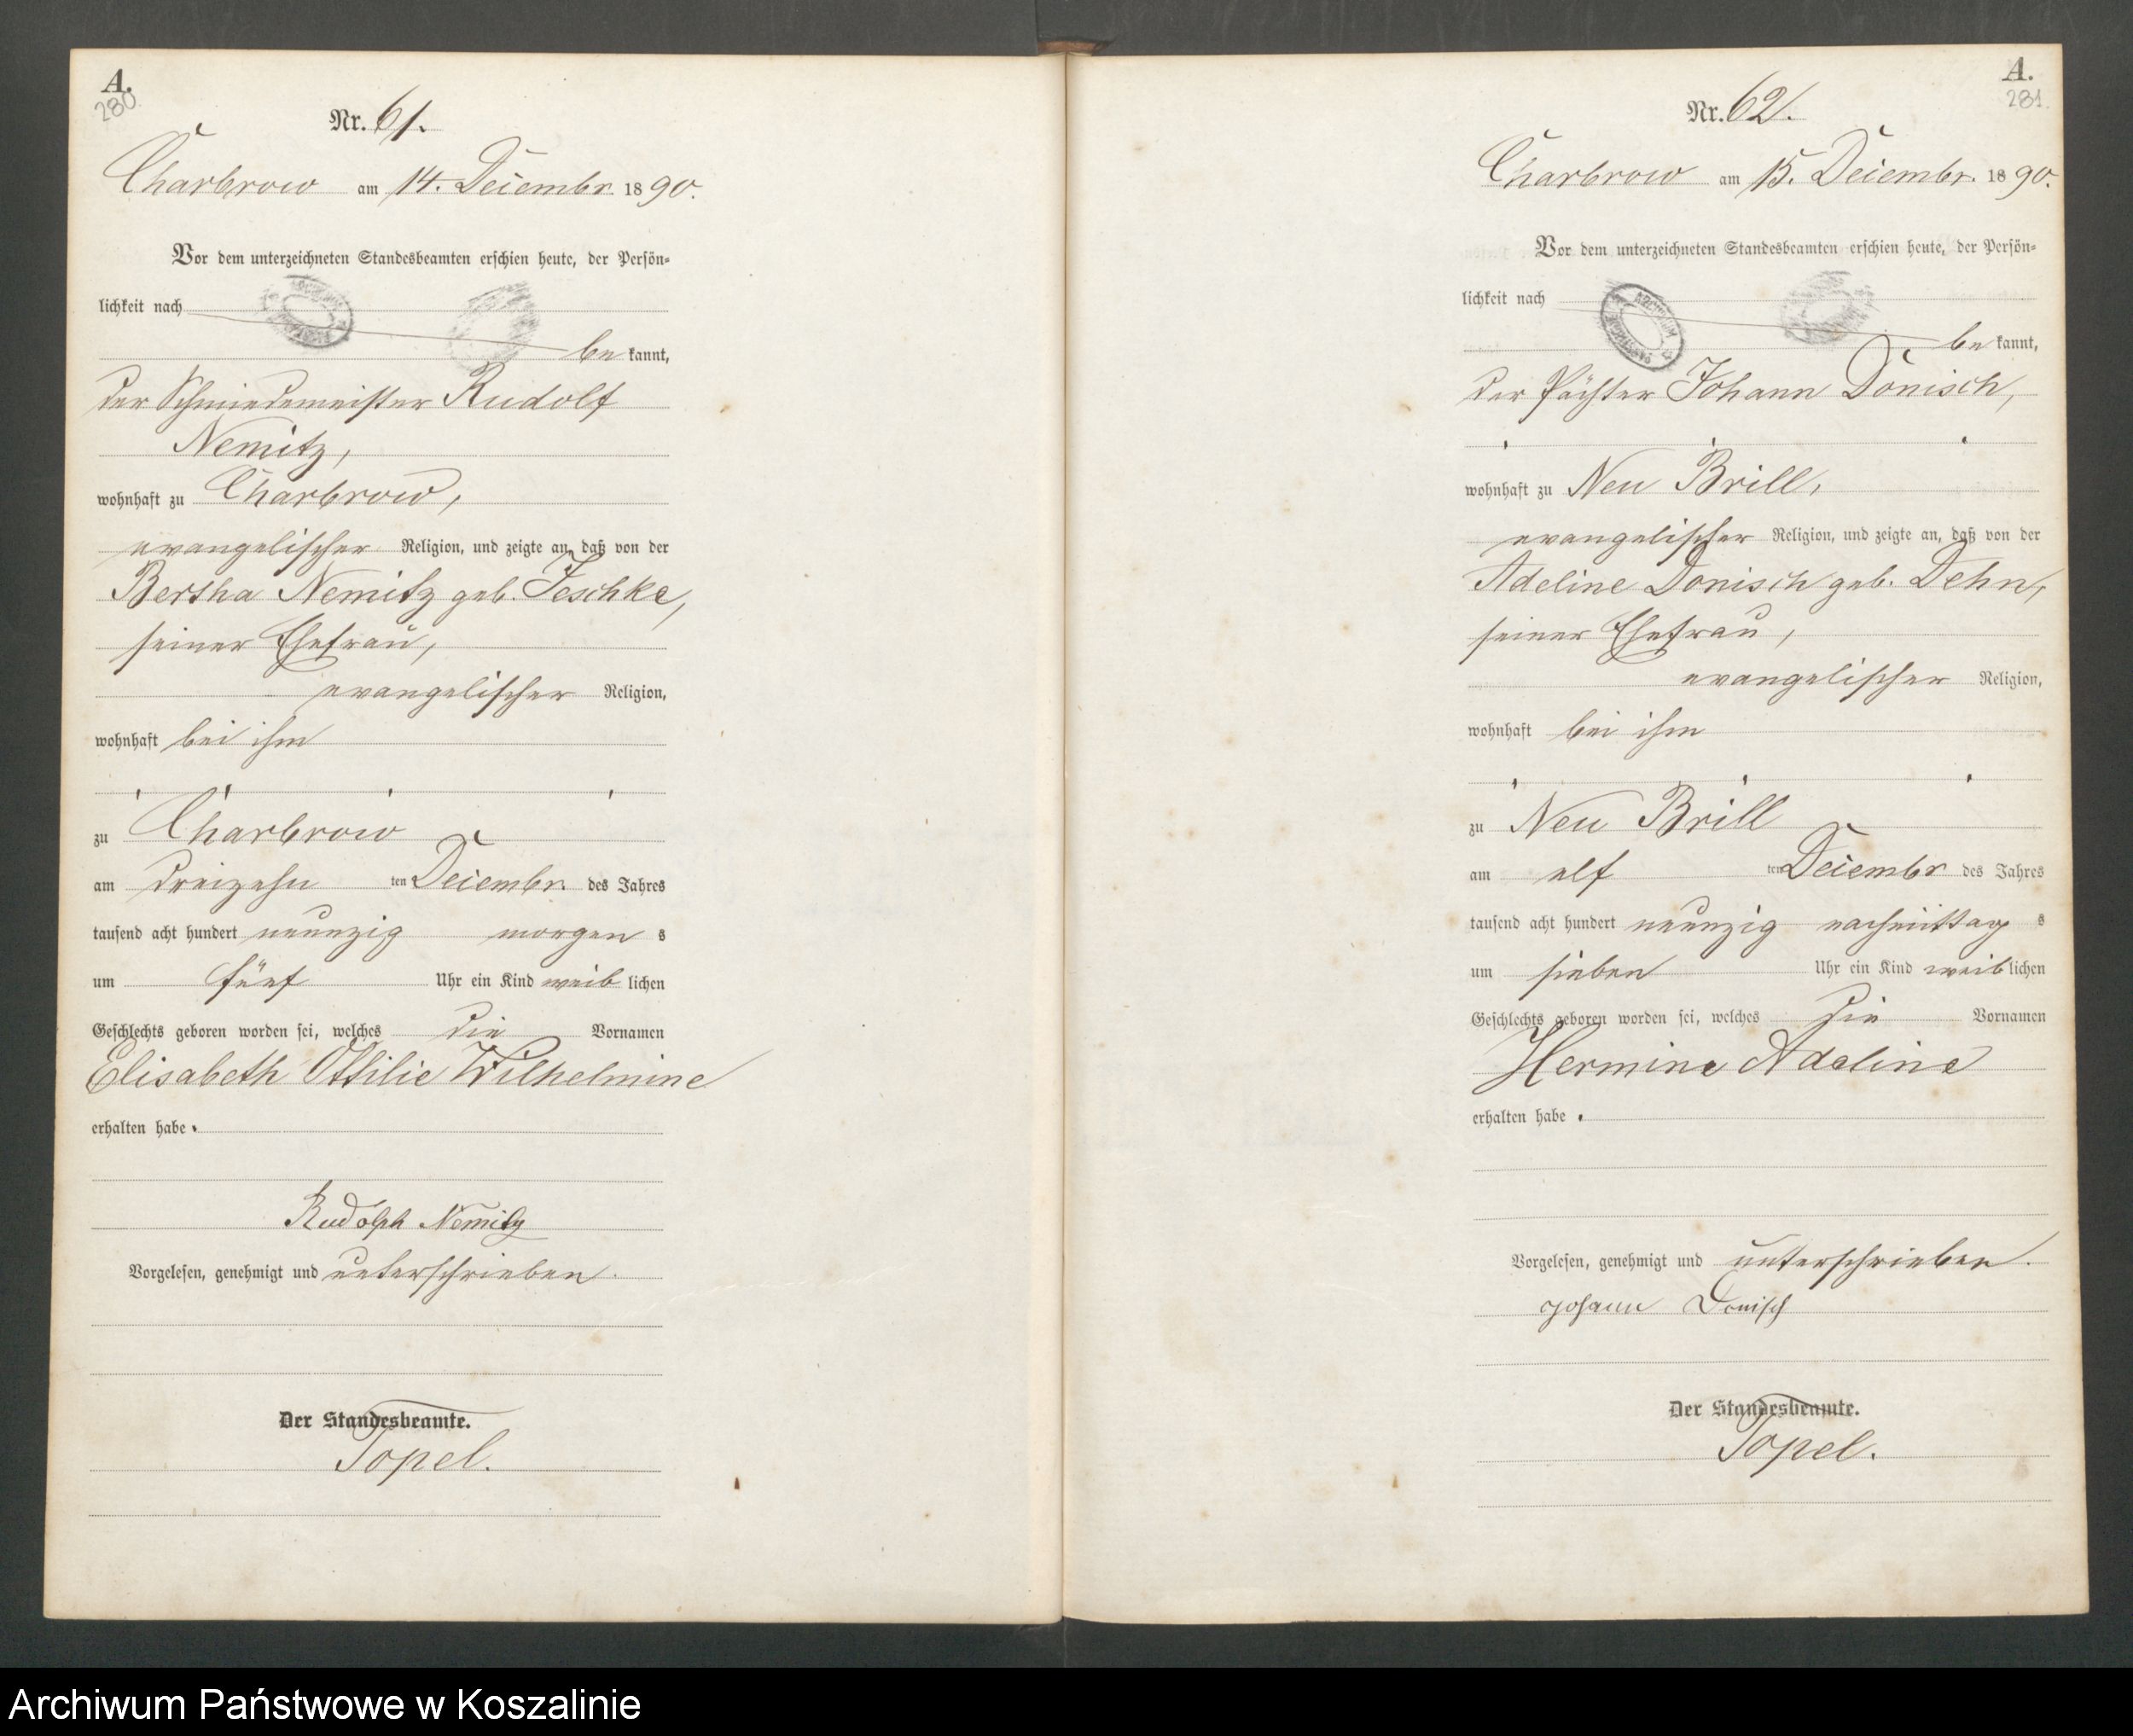 A.
280
Nr. 61.
Charbrow am 14. Dezember 1890.
Vor dem unterzeichneten Standesbeamten erschien heute, der Persön-
lichkeit nach
be kannt,
der Schmiedemeister Rudolf
Nemitz,
wohnhaft zu Charbrow,
evangelischer Religion, und zeigte an, daß von der
Bertha Nemitz geb. Jeschke,
seiner Ehefrau,
evangelischer Religion,
wohnhaft bei ihm
zu Charbrow
am dreizehn ten Dezembr. des Jahres
tausend acht hundert neunzig morgen s
um fünf Uhr ein Kind weib lichen
Geschlechts geboren worden sei, welches die Vornamen
Elisabeth Ottilie Wilhelmine
erhalten habe.
Rudolph Nemitz
Vorgelesen, genehmigt und unterschrieben.
Der Standesbeamte.
Topel.
A.
281
Nr. 62.
Charbrow am 15. Dezembr. 1890.
Vor dem unterzeichneten Standesbeamten erschien heute, der Persön-
lichkeit nach
ARCHIWUM
be kannt,
der Pächter Johann Donisch,
wohnhaft zu Neu Brill,
evangelischer Religion, und zeigte an, daß von der
Adeline Donisch geb. Dehn,
seiner Ehefrau,
evangelischer Religion,
wohnhaft bei ihm
zu Neu Brill
am elf ten Dezembr des Jahres
tausend acht hundert neunzig nachmittag s
um sieben Uhr ein Kind weib lichen
Geschlechts geboren worden sei, welches die Vornamen
Hermine Adeline
erhalten habe.
Vorgelesen, genehmigt und unterschrieben.
Johann Donisch
Der Standesbeamte.
Topel.
Archiwum Państwowe w Koszalinie